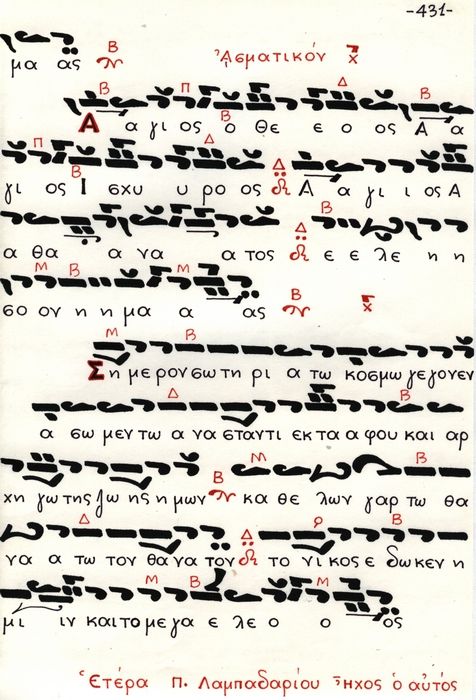 -431-
μα ας Ἀσματικόν
Α α γι ος ο θε ε ο ος Α α
γι ος Ι σχυ υ ρο ος Α α γι ι ος Α
α θα α να α τος ε ε λε η η
σο ον η η μα α ας
Ση με ρον σω τη ρι α τω κοσμω γεγονεν
α σω μεν τω α να σταντι εκ τα α φου και αρ
χη γω της ζω ης η μων κα θε λων γαρ τω θα
να α τω τον θα να τον το νι κος ε δω κεν η
μι ιν και το με γα ε λε ο ο ος
Ἑτέρα Π. Λαμπαδαρίου Ἦχος ὁ αὐτός